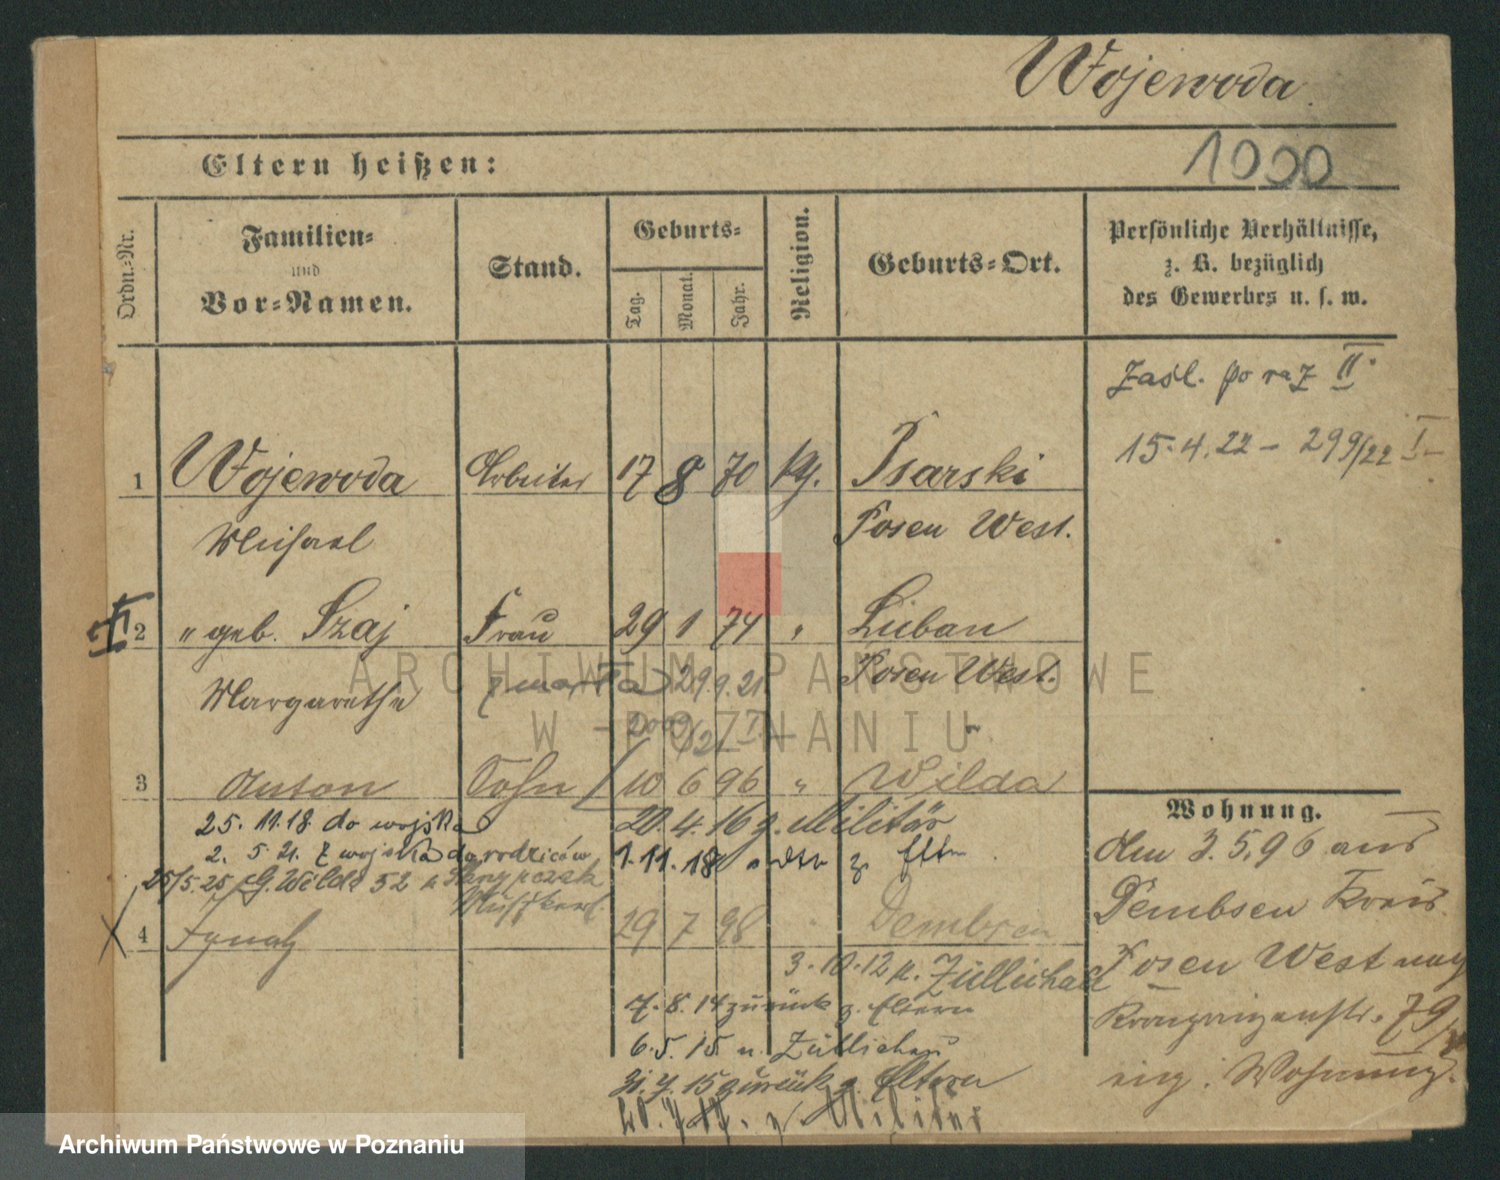 Wojewoda
Eltern heißen:
1000
Ordn.-Nr.
Familien-
und
Vor-Namen.
Stand.
Geburts-
Tag.
Monat.
Jahr.
Religion.
Geburts-Ort.
Persönliche Verhältnisse,
z. B. bezüglich
des Gewerbes u. s. w.
Zaśl. po raz II.
15.4.22 - 299/22 I-
1 Wojewoda Arbeiter 17 8 70 kg. Psarski
Michael Posen West.
2 " geb. Szaj Frau 29 1 74 " Luban
Margarethe zmarła 29.9.21 Posen West.
3 Anton Sohn 10 6 96 " Wilda
25.11.18 do wojska 20.4.16 z. Militär
2. 5 21. z wojska do rodziców 1.11.18 z. Eltn
25/5.25 G. Wilda 52
4 Ignatz 29 7 98 " Dembsen
3.10.12 n. Züllichau
7.8.14 zurück z. Eltern
6.5.15 n. Züllichau
15 zurück z. Eltern
z. Militär
Wohnung.
Am 3.5.96 aus
Dembsen Kreis
Posen West nach
Kronprinzenstr. 79
eig. Wohnung.
ARCHIWUM PAŃSTWOWE
W POZNANIU
Archiwum Państwowe w Poznaniu